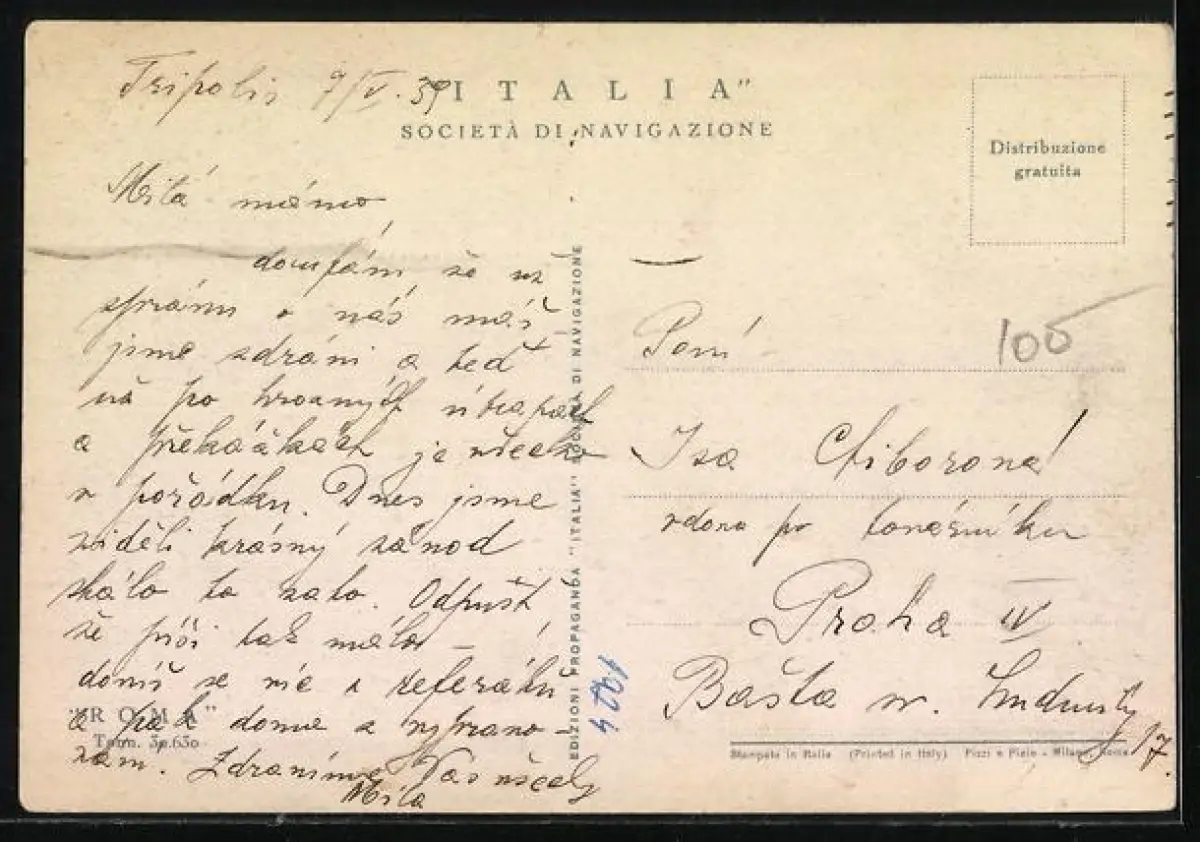 Tripolis 9/V. 39
"ITALIA"
SOCIETÀ DI NAVIGAZIONE
Distribuzione
gratuita
Milá mámo
doufám že už
zprávu o nás máš
jsme zdrávi a teď
už po hrozných útrapách
a překážkách je všecko
v pořádku. Dnes jsme
viděli krásný závod
stálo to zato. Odpusť
že píši tak málo –
dovíš se víc z referátů
a pak doma a vypravo-
vám. Zdravíme Vás všecky
Míla
"ROMA"
Tonn. 30.630
EDIZIONI PROPAGANDA "ITALIA" SOCIETÀ DI NAVIGAZIONE
1024
100
Paní
Isa Ctiborová
vdova po továrníku
Praha IV
Bašta sv. Ludmily
17.
Stampato in Italia (Printed in Italy) Pizzi e Pizio - Milano-Roma